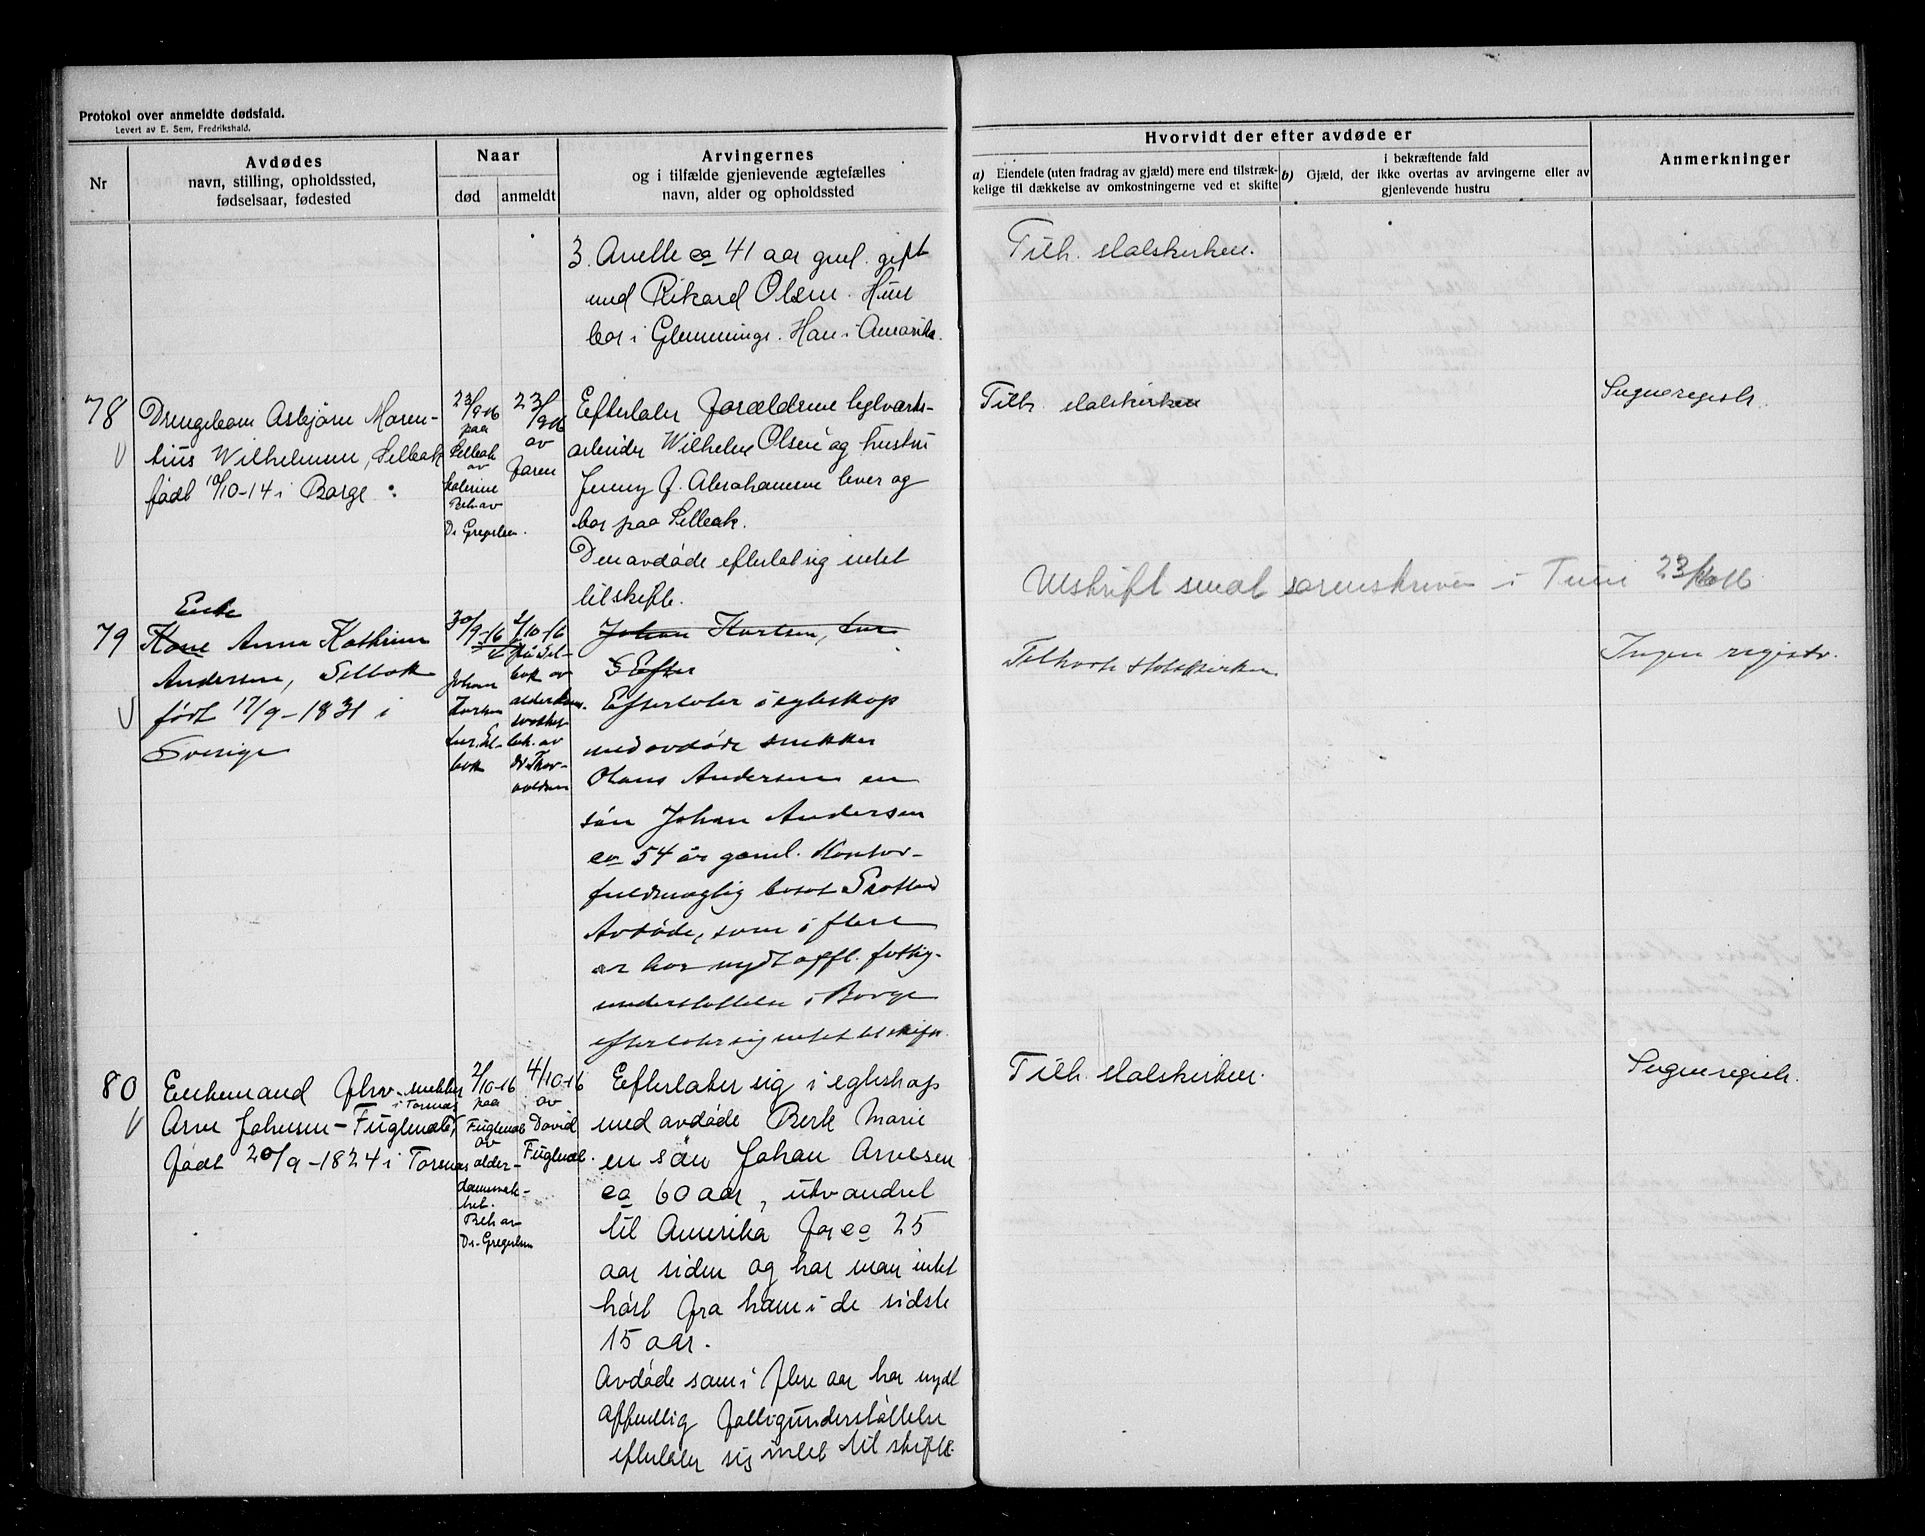 Protokol over anmeldte dødsfald.
Levert av E. Sem, Fredrikshald.
Nr
Avdødes
navn, stilling, opholdssted,
fødselsaar, fødested
Naar
død
anmeldt
Arvingernes
og i tilfælde gjenlevende ægtefælles
navn, alder og opholdssted
Hvorvidt der efter avdøde er
a) Eiendele (uten fradrag av gjæld) mere end tilstræk-
kelige til dækkelse av omkostningerne ved et skifte
i bekræftende fald
b) Gjæld, der ikke overtas av arvingerne eller av
gjenlevende hustru
Anmerkninger
3. Anelle ca 41 aar gml. gift
med Rikard Olsen. Hun
bor i Glemminge. Han i Amerika.
Tilh. statskirken.
78
Drengebarn Asbjørn Maren-
tius Wilhelmsen, Selbak
født 10/10-14 i Borge
23/9-16
paa
Selbak
av
Kolerine
Beh av
Dr Gregersen.
23/9-16
av
faren
Efterlater forældrene teglverks-
arbeider Wilhelm Olsen og hustru
Jenny f. Abrahamsen lever og
bor paa Selbak.
Den avdøde efterlot sig intet
til skifte.
Tilh. statskirken
Ingen registr.
Utskrift sendt sorenskriveren i Tune 23/10-16
79
Enke
Kone Anna Kathrine
Andersen, Selbak
født 17/9-1831 i
Sverige
30/9-16
Johan
Karlsen
Lur. Sel-
bak
2/10-16
på Sel-
bak av
alderdoms-
svakhet
beh. av
dr. Thor-
valdsen
Johan Karlsen, Lur
G Efter
Efterlater i egteskap
med avdøde snekker
Olaus Andersen en
søn Johan Andersen
ca 54 år gaml. Kontor-
fuldmægtig bosat Skotland
Avdøde, som i flere
år har nydt offl. fattig-
understøttelse i Borge
efterlater sig intet til skifte.
Tilhørte statskirken
Ingen registr.
80
Enkemand fhv. snekker
i Torsnæs
Arne Johnsen-Fuglendal,
født 20/9-1824 i Torsnæs
2/10-16
paa
Fuglendal
av
alder-
domsvak-
het.
Beh av
Dr. Gregersen
4/10-16
av
David
Fuglendal.
Efterlater sig i egteskap
med avdøde Berte Marie
en søn Johan Arnesen
ca 60 aar, utvandret
til Amerika for ca 25
aar siden og har man intet
hørt fra ham i de sidste
15 aar.
Avdøde som i flere aar har nydt
offentlig fattigunderstøttelse
efterlater sig intet til skifte.
Tilh. statskirken.
Ingen registr.